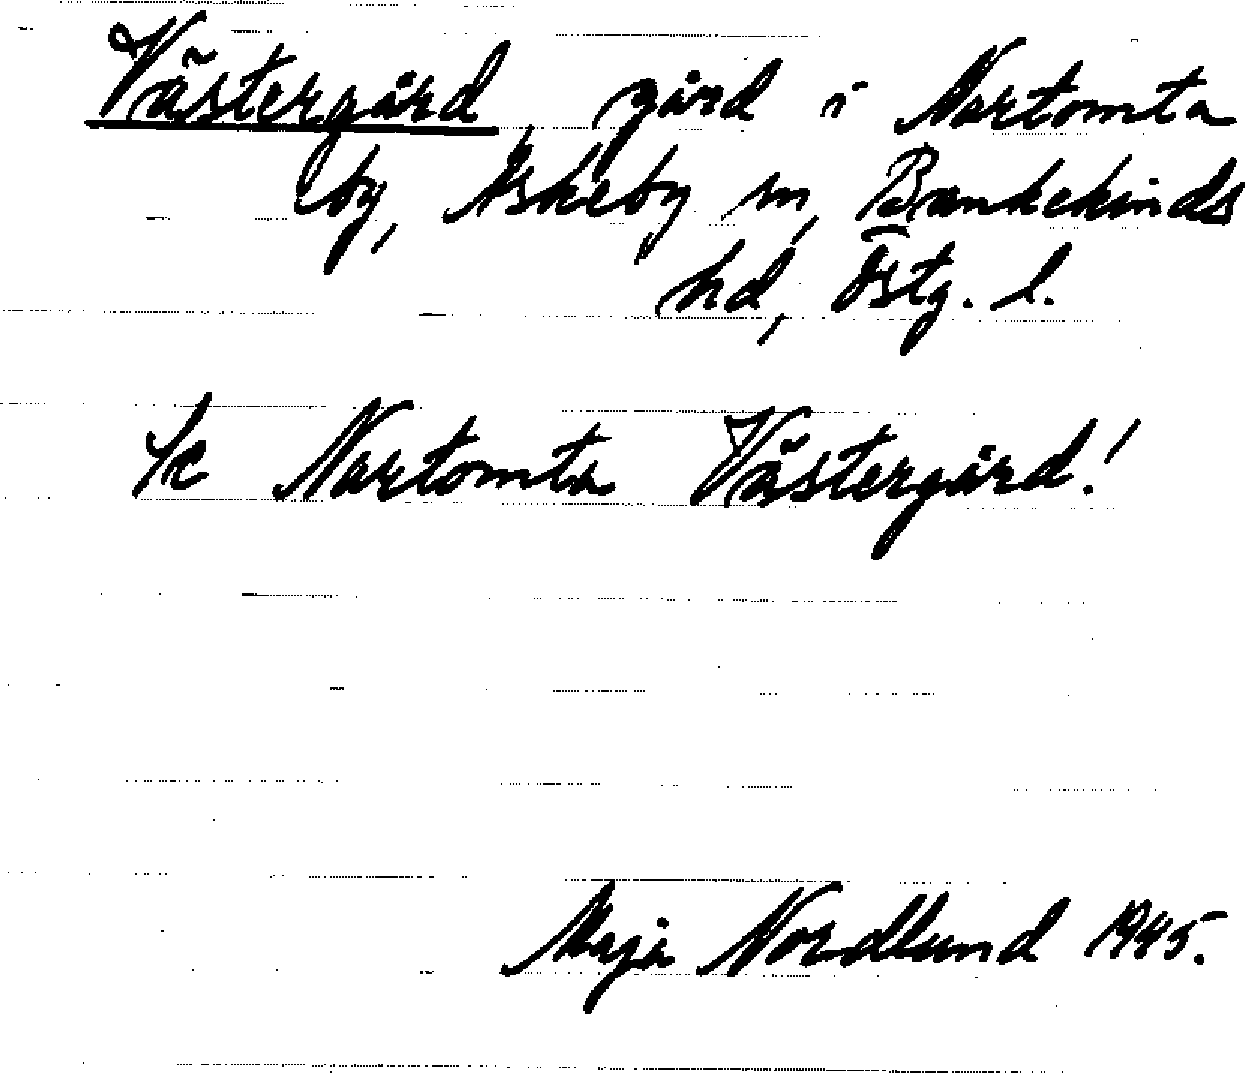 Västergård, gård i Nartomta
by, Askeby sn, Bankekinds
hd, Östg. l.
Se Nartomta Västergård!
Maja Nordlund 1945.